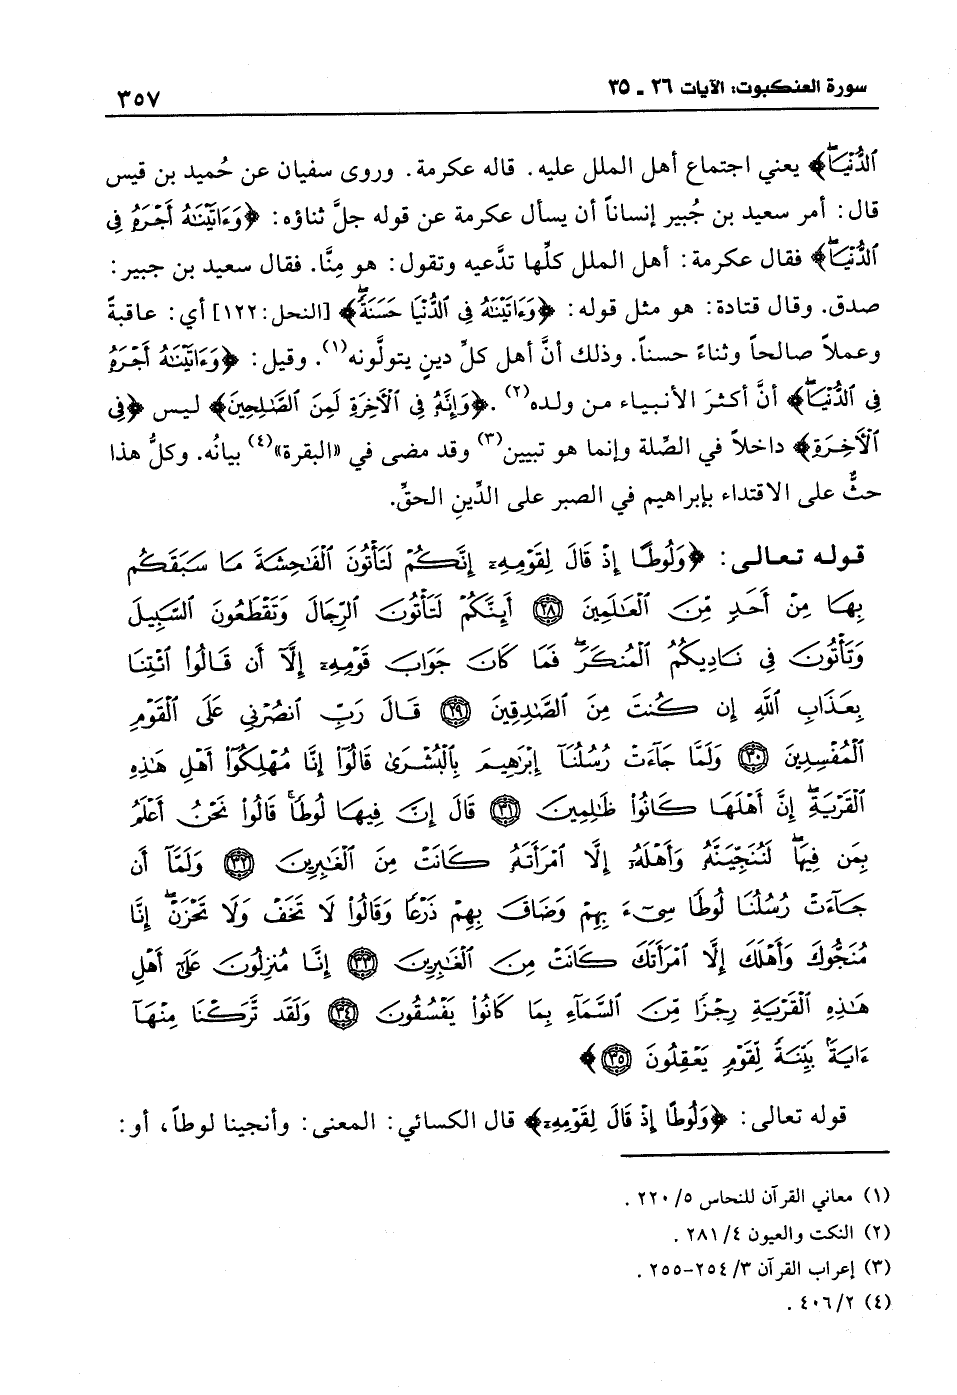 سورة العنكبوت: الآيات ٢٦ - ٣٥
٣٥٧
ٱلدُّنْيَا﴾ يعني اجتماع أهل الملل عليه. قاله عكرمة. وروى سفيان عن حُميد بن قيس
قال: أمر سعيد بن جُبير إنساناً أن يسأل عكرمة عن قوله جلَّ ثناؤه: ﴿وَءَاتَيْنَٰهُ أَجْرَهُۥ فِى
ٱلدُّنْيَا﴾ فقال عكرمة: أهل الملل كلِّها تدَّعيه وتقول: هو مِنَّا. فقال سعيد بن جبير:
صدق. وقال قتادة: هو مثل قوله: ﴿وَءَاتَيْنَٰهُ فِى ٱلدُّنْيَا حَسَنَةً﴾ [النحل:١٢٢] أي: عاقبةً
وعملاً صالحاً وثناءً حسناً. وذلك أنَّ أهل كلِّ دينٍ يتولَّونه(١). وقيل: ﴿وَءَاتَيْنَٰهُ أَجْرَهُۥ
فِى ٱلدُّنْيَا﴾ أنَّ أكثرَ الأنبياء من ولده(٢). ﴿وَإِنَّهُۥ فِى ٱلْأَخِرَةِ لَمِنَ ٱلصَّٰلِحِينَ﴾ ليس ﴿فِى
ٱلْأَخِرَةِ﴾ داخلاً في الصِّلة وإنما هو تبيين(٣) وقد مضى في «البقرة»(٤) بيانُه. وكلُّ هذا
حثٌّ على الاقتداء بإبراهيم في الصبر على الدِّينِ الحقِّ.
قوله تعالى: ﴿وَلُوطًا إِذْ قَالَ لِقَوْمِهِۦٓ إِنَّكُمْ لَتَأْتُونَ ٱلْفَٰحِشَةَ مَا سَبَقَكُم
بِهَا مِنْ أَحَدٍ مِّنَ ٱلْعَٰلَمِينَ ٢٨ أَئِنَّكُمْ لَتَأْتُونَ ٱلرِّجَالَ وَتَقْطَعُونَ ٱلسَّبِيلَ
وَتَأْتُونَ فِى نَادِيكُمُ ٱلْمُنكَرَ فَمَا كَانَ جَوَابَ قَوْمِهِۦٓ إِلَّآ أَن قَالُوا۟ ٱئْتِنَا
بِعَذَابِ ٱللَّهِ إِن كُنتَ مِنَ ٱلصَّٰدِقِينَ ٢٩ قَالَ رَبِّ ٱنصُرْنِى عَلَى ٱلْقَوْمِ
ٱلْمُفْسِدِينَ ٣٠ وَلَمَّا جَآءَتْ رُسُلُنَآ إِبْرَٰهِيمَ بِٱلْبُشْرَىٰ قَالُوٓا۟ إِنَّا مُهْلِكُوٓا۟ أَهْلِ هَٰذِهِ
ٱلْقَرْيَةِ إِنَّ أَهْلَهَا كَانُوا۟ ظَٰلِمِينَ ٣١ قَالَ إِنَّ فِيهَا لُوطًا قَالُوا۟ نَحْنُ أَعْلَمُ
بِمَن فِيهَا لَنُنَجِّيَنَّهُۥ وَأَهْلَهُۥٓ إِلَّا ٱمْرَأَتَهُۥ كَانَتْ مِنَ ٱلْغَٰبِرِينَ ٣٢ وَلَمَّآ أَن
جَآءَتْ رُسُلُنَا لُوطًا سِىٓءَ بِهِمْ وَضَاقَ بِهِمْ ذَرْعًا وَقَالُوا۟ لَا تَخَفْ وَلَا تَحْزَنْ إِنَّا
مُنَجُّوكَ وَأَهْلَكَ إِلَّا ٱمْرَأَتَكَ كَانَتْ مِنَ ٱلْغَٰبِرِينَ ٣٣ إِنَّا مُنزِلُونَ عَلَىٰٓ أَهْلِ
هَٰذِهِ ٱلْقَرْيَةِ رِجْزًا مِّنَ ٱلسَّمَآءِ بِمَا كَانُوا۟ يَفْسُقُونَ ٣٤ وَلَقَد تَّرَكْنَا مِنْهَآ
ءَايَةً بَيِّنَةً لِّقَوْمٍ يَعْقِلُونَ ٣٥﴾
قوله تعالى: ﴿وَلُوطًا إِذْ قَالَ لِقَوْمِهِۦٓ﴾ قال الكسائي: المعنى: وأنجينا لوطاً، أو:
(١) معاني القرآن للنحاس ٥/ ٢٢٠ .
(٢) النكت والعيون ٤/ ٢٨١ .
(٣) إعراب القرآن ٣/ ٢٥٤-٢٥٥ .
(٤) ٢/ ٤٠٦ .